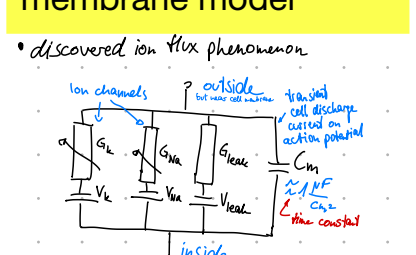 membrane model
• discovered ion flux phenomenon
Ion channels
outside
but near cell membrane
transient
cell discharge
current on
action potential
G_K
G_Na
G_leak
C_m
V_K
V_Na
V_leak
≈ 1 μF
cm²
time constant
inside